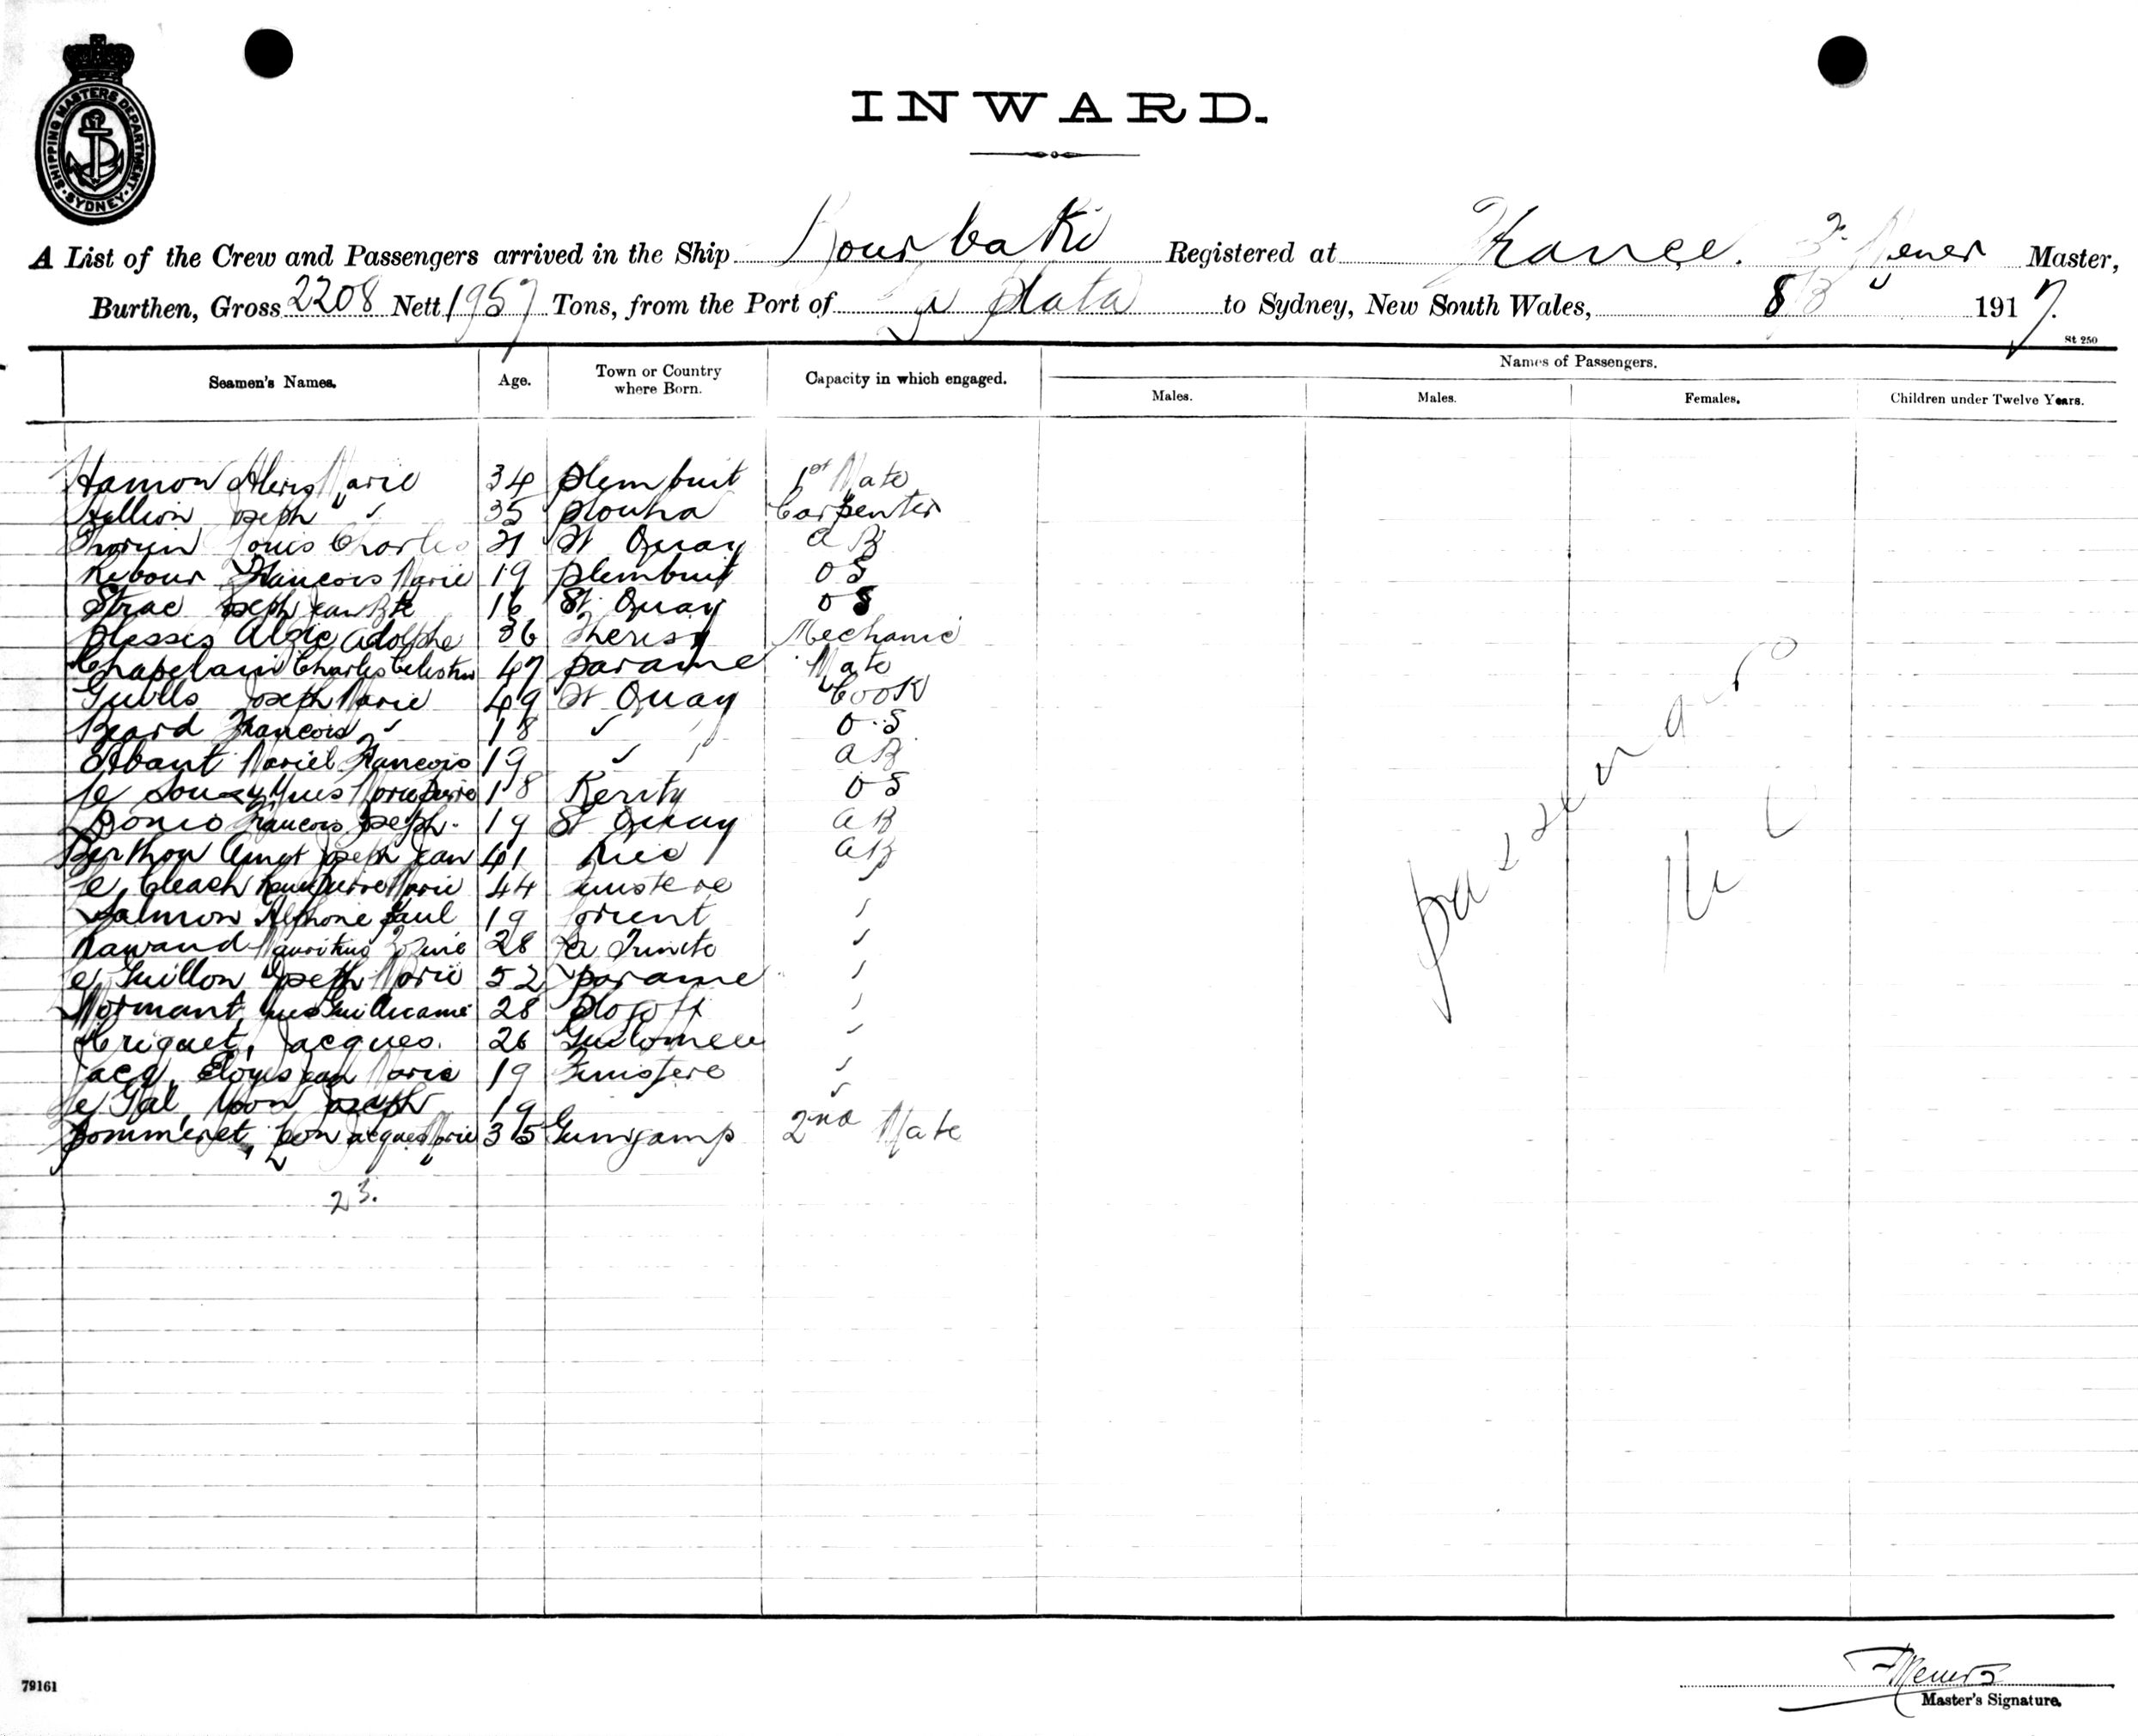 SHIPPING MASTERS DEPARTMENT · SYDNEY ·
INWARD.
A List of the Crew and Passengers arrived in the Ship Bourbaki Registered at France. F. Mener Master,
Burthen, Gross 2208 Nett 1957 Tons, from the Port of La Plata to Sydney, New South Wales, 8/3 1917.
St 250
Seamen's Names. Age. Town or Country where Born. Capacity in which engaged. Names of Passengers.
Males. Males. Females. Children under Twelve Years.
Hamon Alexis Marie 34 Plembuit 1st Mate
Hellion Joseph " 35 Plouha Carpenter
Thorin Louis Charles 21 St Quay AB
Rebour Francois Marie 19 Plembuit OS
Strae Joseph Jean Bte 16 St Quay OS
Plessis Algie Adolphe 36 Mechanic
Chapelain Charles Celestin 47 Parame Mate
Joseph Marie 49 St Quay Cook
Beard Francois " 18 " " O.S
Abant Francois 19 " " AB
Le Marie Pierre 18 Kerity OS
Bonio Francois Joseph. 19 St Quay AB
Berthou Joseph Jean 41 AB
Le Cleach Pierre Marie 44 Finistere "
Salmon Alphone Paul 19 Lorient "
28 "
Le Guillon Joseph Marie 52 Parame "
Normant, 28 Plogoff "
Heriquet, Jacques. 26 "
Jacq, Jean Marie 19 Finistere "
Le Gal, Yvon Joseph 19 "
Pommeret, Leon Jacques Marie 35 Guingamp 2nd Mate
23.
passengers
Nil
79161
F Mener
Master's Signature.